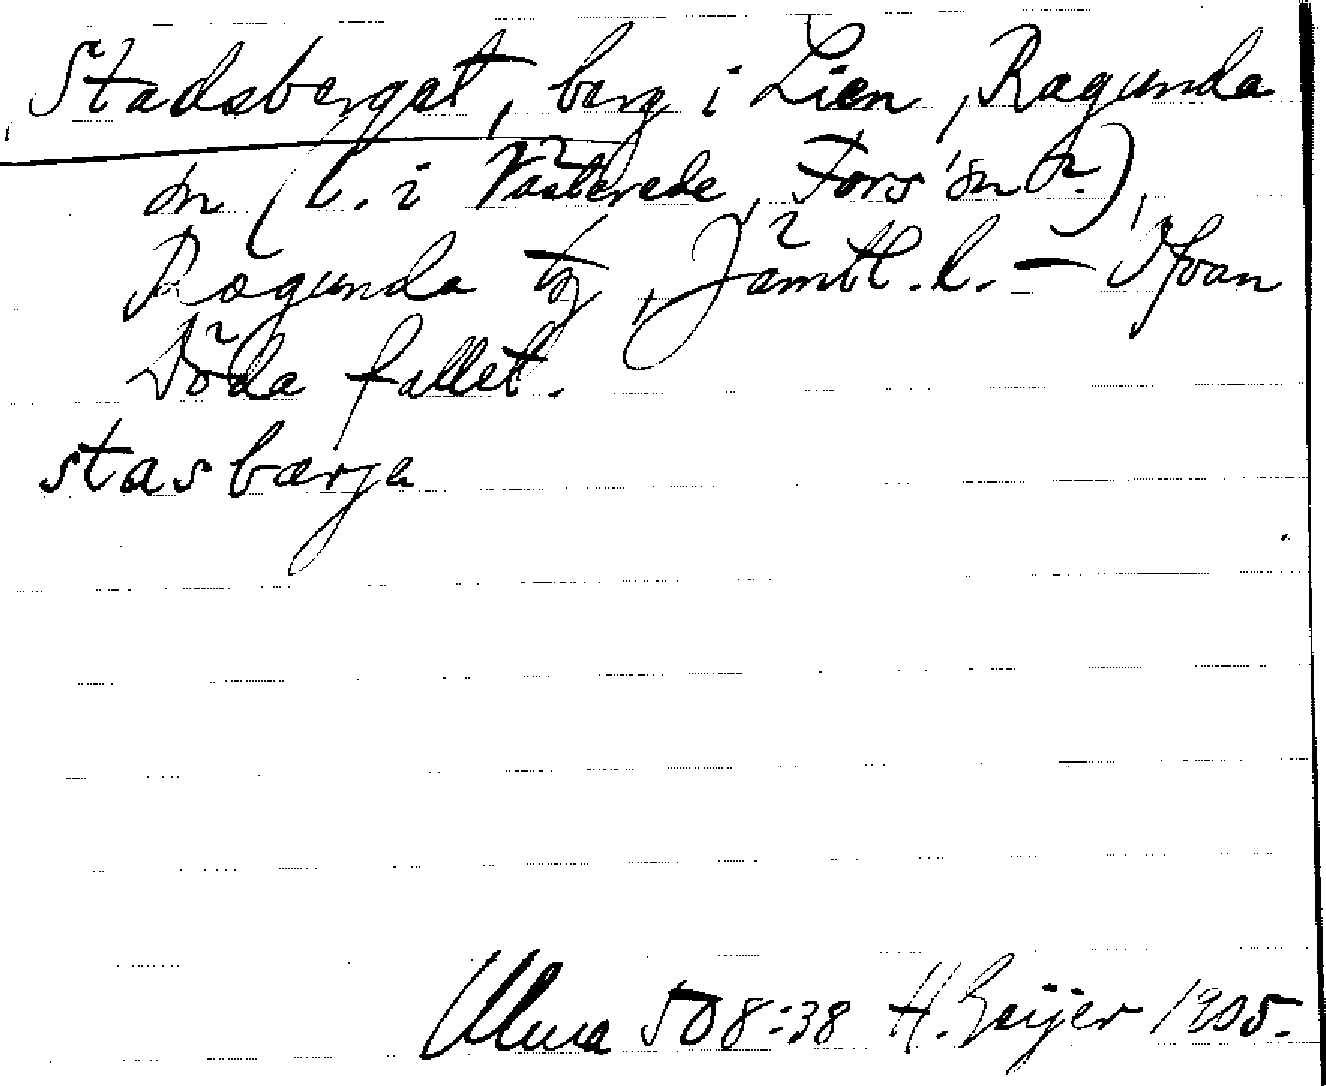 Stadsberget, berg i Lien, Ragunda
sn (l. i Västerede, Fors sn?),
Ragunda tg, Jämtl. l. — Ofvan
Döda fallet.
stasbærja
Ulma 508:38 H. Geijer 1905.